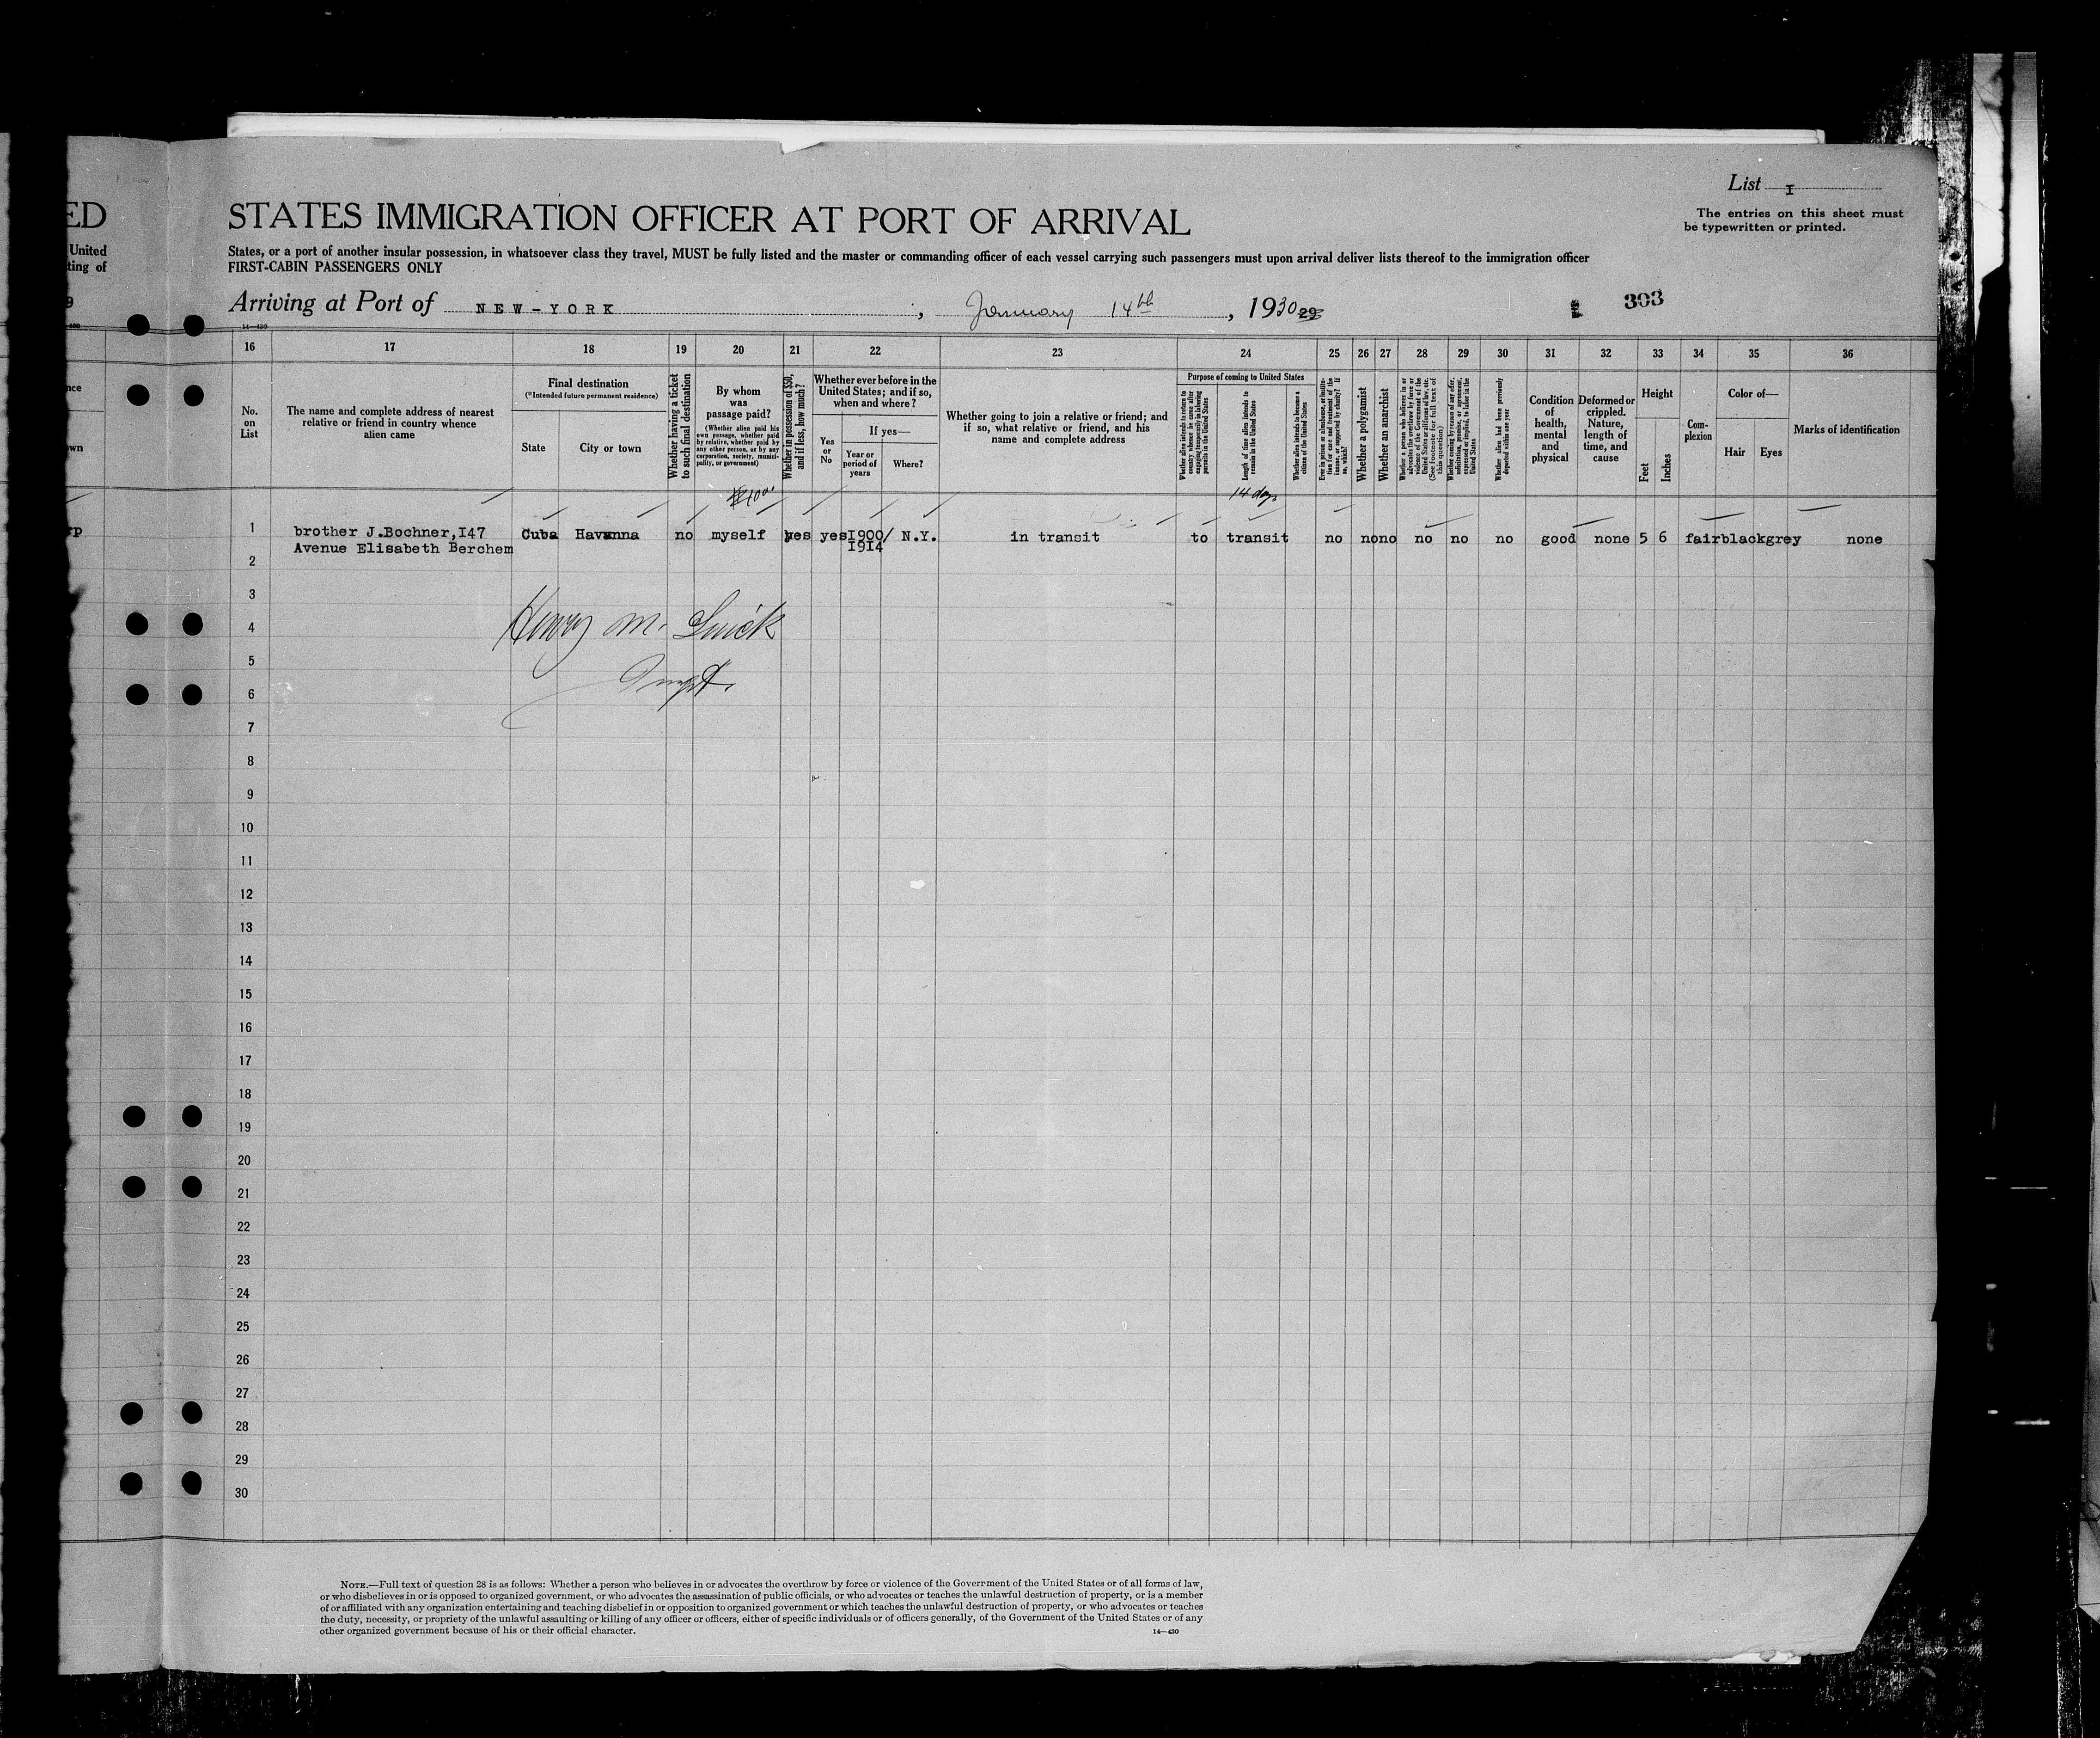 List I
The entries on this sheet must
be typewritten or printed.
ED
STATES IMMIGRATION OFFICER AT PORT OF ARRIVAL
United
States, or a port of another insular possession, in whatsoever class they travel, MUST be fully listed and the master or commanding officer of each vessel carrying such passengers must upon arrival deliver lists thereof to the immigration officer
ting of
FIRST-CABIN PASSENGERS ONLY
9
Arriving at Port of NEW-YORK, January 14th, 1930 29
303
14—430
16 17 18 19 20 21 22 23 24 25 26 27 28 29 30 31 32 33 34 35 36
No. on List
The name and complete address of nearest
relative or friend in country whence
alien came
Final destination
(*Intended future permanent residence)
State
City or town
Whether having a ticket
to such final destination
By whom
was
passage paid?
(Whether alien paid his
own passage, whether paid
by relative, whether paid by
any other person, or by any
corporation, society, munici-
pality, or government)
Whether in possession of $50,
and if less, how much?
Whether ever before in the
United States; and if so,
when and where?
Yes
or
No
If yes—
Year or
period of
years
Where?
Whether going to join a relative or friend; and
if so, what relative or friend, and his
name and complete address
Purpose of coming to United States
Whether alien intends to return to
country whence he came after
engaging temporarily in laboring
pursuits in the United States
Length of time alien intends to
remain in the United States
Whether alien intends to become a
citizen of the United States
Ever in prison or almshouse, or institu-
tion for care and treatment of the
insane, or supported by charity? If
so, which?
Whether a polygamist
Whether an anarchist
Whether a person who believes in or
advocates the overthrow by force or
violence of the Government of the
United States or all forms of law, etc.
(See footnote for full text of
this question)
Whether coming by reason of any offer,
solicitation, promise, or agreement,
expressed or implied, to labor in the
United States
Whether alien had been previously
deported within one year
Condition
of
health,
mental
and
physical
Deformed or
crippled.
Nature,
length of
time, and
cause
Height
Feet
Inches
Com-
plexion
Color of—
Hair
Eyes
Marks of identification
14 days
1 brother J.Bochner,I47 Cuba Havanna no myself yes yes I900/ N.Y. in transit to transit no no no no no no good none 5 6 fair black grey none
Avenue Elisabeth Berchem I9I4
2
3
4 Henry M.
5
6
7
8
9
10
11
12
13
14
15
16
17
18
19
20
21
22
23
24
25
26
27
28
29
30
NOTE.—Full text of question 28 is as follows: Whether a person who believes in or advocates the overthrow by force or violence of the Government of the United States or of all forms of law,
or who disbelieves in or is opposed to organized government, or who advocates the assassination of public officials, or who advocates or teaches the unlawful destruction of property, or is a member
of or affiliated with any organization entertaining and teaching disbelief in or opposition to organized government or which teaches the unlawful destruction of property, or who advocates or teaches
the duty, necessity, or propriety of the unlawful assaulting or killing of any officer or officers, either of specific individuals or of officers generally, of the Government of the United States or of any
other organized government because of his or their official character.
14—430